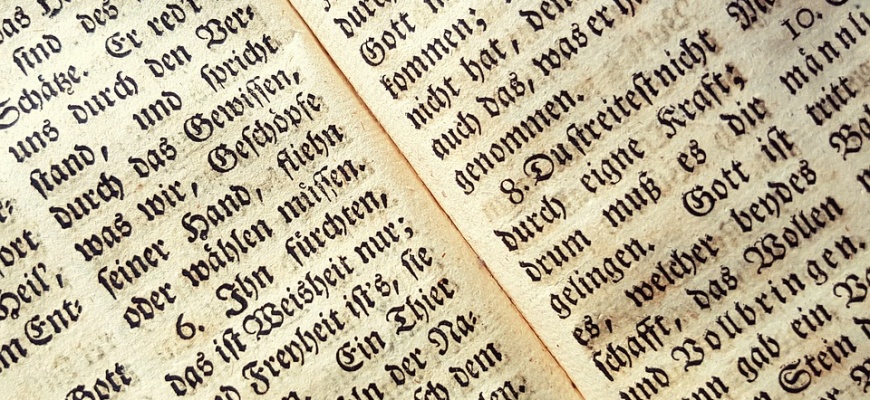 Heil,
Ent-
Gott
sind des
Schätze. Er red't
uns durch den Ver-
stand, und spricht
durch das Gewissen,
was wir, Geschöpfe
seiner Hand, fliehn
oder wählen müssen.
6. Ihn fürchten,
das ist Weisheit nur;
Freyheit ist's, sie
Ein Thier
der Na-
dem
durch
Gott
kommen;
nicht hat, den
auch das, was er
genommen.
8. Du streitest nicht
durch eigne Kraft;
drum muß es dir
gelingen. Gott ist
es, welcher beydes
schafft, das Wollen
und Vollbringen.
gab ein
Stein
10.
männli
tritt